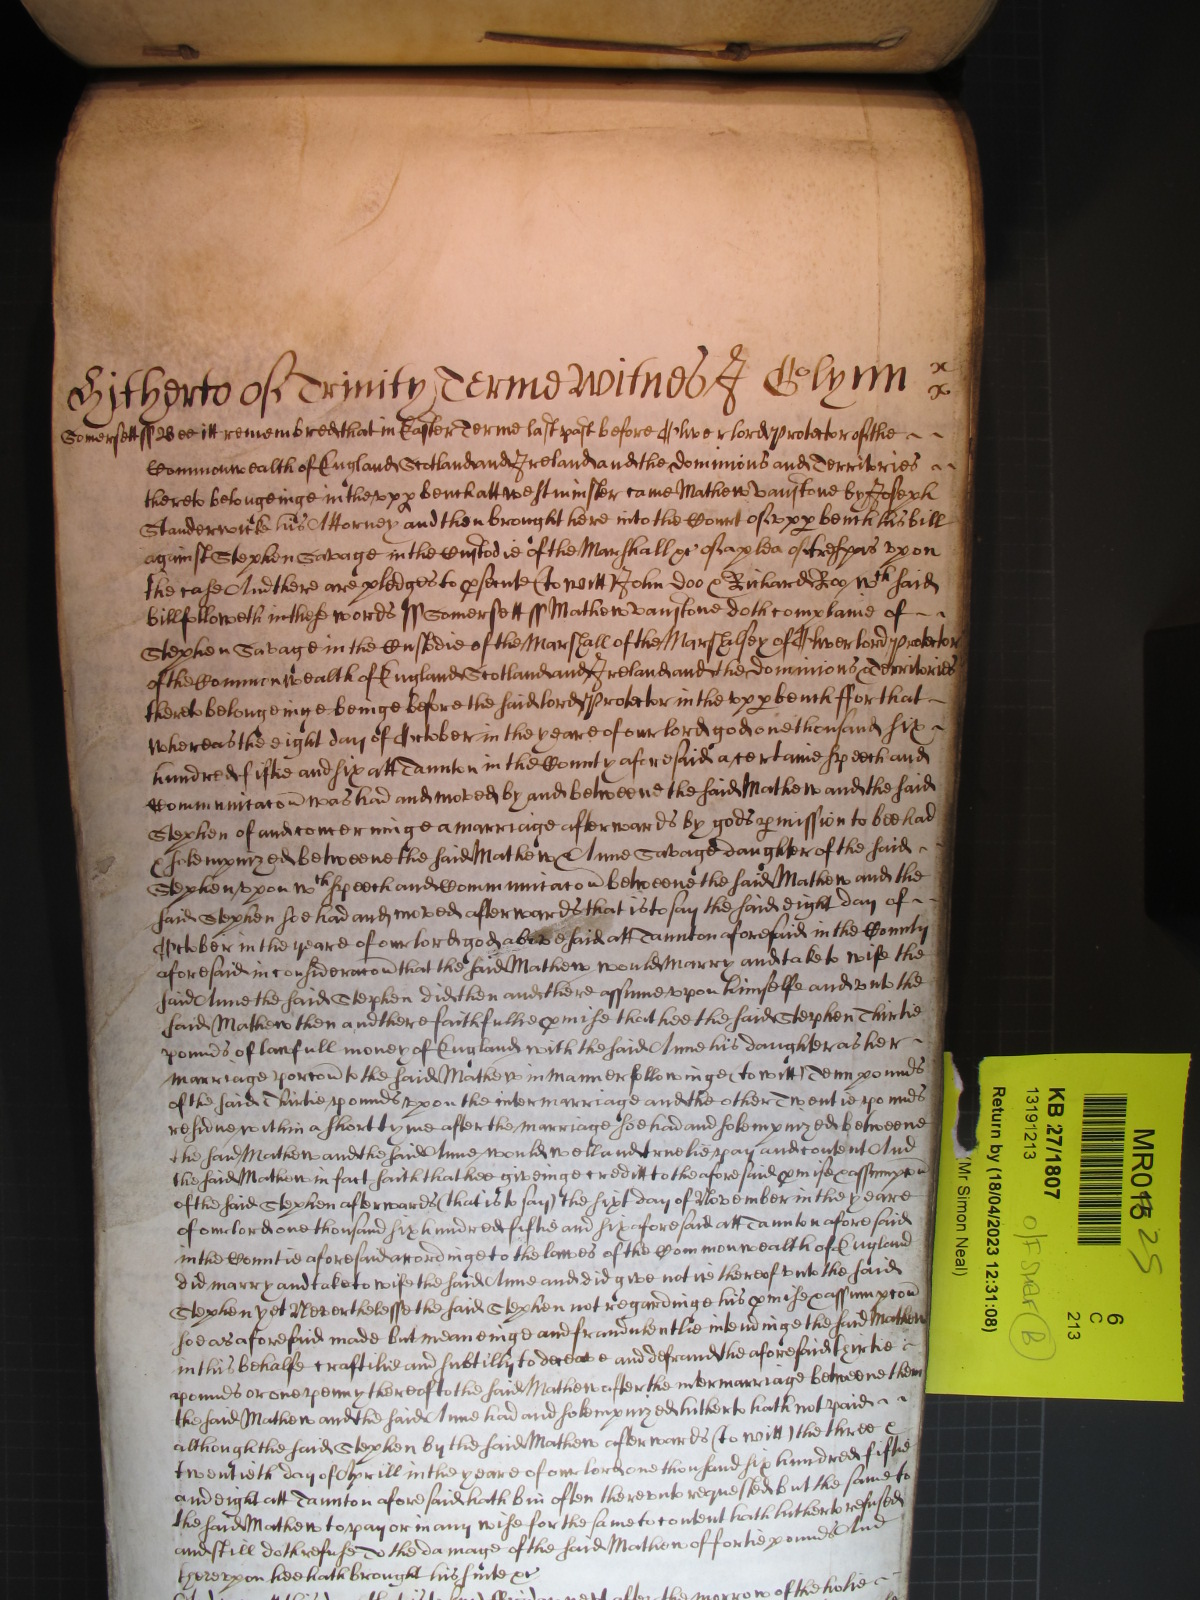 Hitherto of Trinity Terme Witnes J Glynn
Somersett ss Bee itt remembred that in Easter Terme last past before Oliver lord Protector of the
Commonwealth of England Scotland and Ireland and the dominions and Territories
thereto belongeinge in the upp bench att Westminster came Mathew Vanstone by Joseph
Standerwicke his Attorney and then brought here into the Court of upp bench his bill
against Stephen Savage in the Custodie of the Marshall &c of a plea of trespas upon
the case And there are pledges to psecute (to witt) John Doo & Richard Roo wch said
bill followeth in these words ss Somersett ss Mathew Vanstone doth complaine of
Stephen Savage in the Custodie of the Marshall of the Marshalsey of Oliver lord Protector
of the Commonwealth of England Scotland and Ireland and the Dominions & Territories
thereto belongeinge beinge before the said lord Protector in the upp bench ffor that
whereas the eight day of October in the yeare of our lord god one thousand six
hundred fiftie and six att Taunton in the County aforesaid a certaine speech and
Communicacon was had and moved by and betweene the said Mathew and the said
Stephen of and concerninge a marriage afterwards by gods pmission to bee had
& solempnized betweene the said Mathew & Anne Savage daughter of the said
Stephen upon wch speech and Communicacon betweene the said Mathew and the
said Stephen soe had and moved afterwards that is to say the said eight day of
October in the yeare of our lord god above said att Taunton aforesaid in the County
aforesaid in consideracon that the said Mathew would marry and take to wife the
said Anne the said Stephen did then and there assume upon himselfe and unto the
said Mathew then and there faithfullie pmise that hee the said Stephen Thirtie
pounds of lawfull money of England with the said Anne his daughter as her
marriage porcon to the said Mathew in manner followinge (to witt) Tenn pounds
of the said Thirtie pounds upon the intermarriage and the other Twentie pounds
residue within a short tyme after the marriage soe had and solempnized betweene
the said Mathew and the said Anne would well and truelie pay and content And
the said Mathew in fact saith that hee giveinge creditt to the aforesaid pmise & assumpcon
of the said Stephen afterwards (that is to say) the sixt day of November in the yeare
of our lord one thousand six hundred fiftie and six aforesaid att Taunton aforesaid
in the Countie aforesaid accordinge to the lawes of the Commonwealth of England
did marry and take to wife the said Anne and did give notice thereof unto the said
Stephen yet Neverthelesse the said Stephen not regardinge his pmise & assumpcon
soe as aforesaid made but meaneinge and fraudulentlie intendinge the said Mathew
in this behalfe craftilie and subtilly to deceave and defraud the aforesaid thirtie
pounds or one penny thereof to the said Mathew after the intermarriage betweene them
the said Mathew and the said Anne had and solempnized hitherto hath not paid
although the said Stephen by the said Mathew afterwards (to witt) the three &
twentieth day of Aprill in the yeare of our lord one thousand six hundred fiftie
and eight att Taunton aforesaid hath bin often thereunto requested but the same to
the said Mathew to pay or in any wise for the same to content hath hitherto refused
and still doth refuse To the damage of the said Mathew of fortie pounds And
thereupon hee hath brought his suite &c
MR013 25
6
C
213
KB 27/1807
13191213
Return by (18/04/2023 12:31:08)
(Mr Simon Neal)